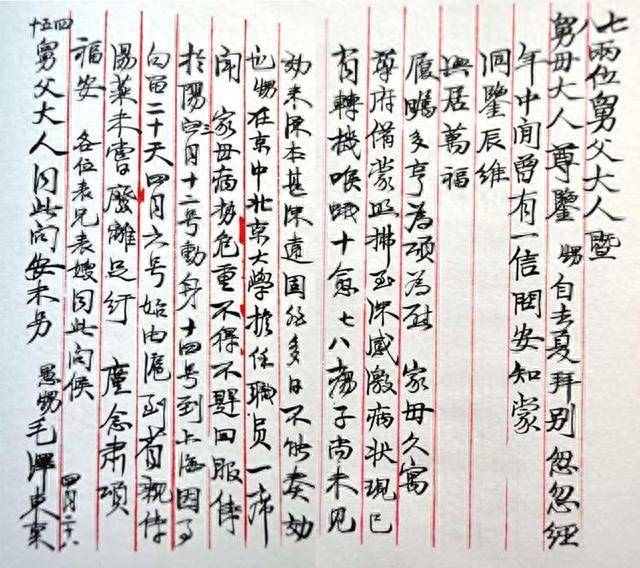 七八兩位舅父大人暨
舅母大人尊鑒 甥自去夏拜別忽忽經
年中間曾有一信問安知蒙
洞鑒辰維
興居萬福
履矚多亨為頌為慰 家母久寓
尊府備蒙照拂至深感激病狀現已
有轉機喉蛾十愈七八瘍子尚未見
効來源本甚深遠固非多日不能奏効
也甥在京中北京大學擔任職員一席
聞 家母病勢危重不得不趕回服侍
於陽三月十二号動身十四号到上海因事
勾留二十天四月六号始由滬到省親侍
湯藥未嘗廢離足紓 廑念肅頌
福安 各位表兄表嫂同此問候
四五十舅父大人同此問安未另 愚甥毛澤東稟
四月二十八